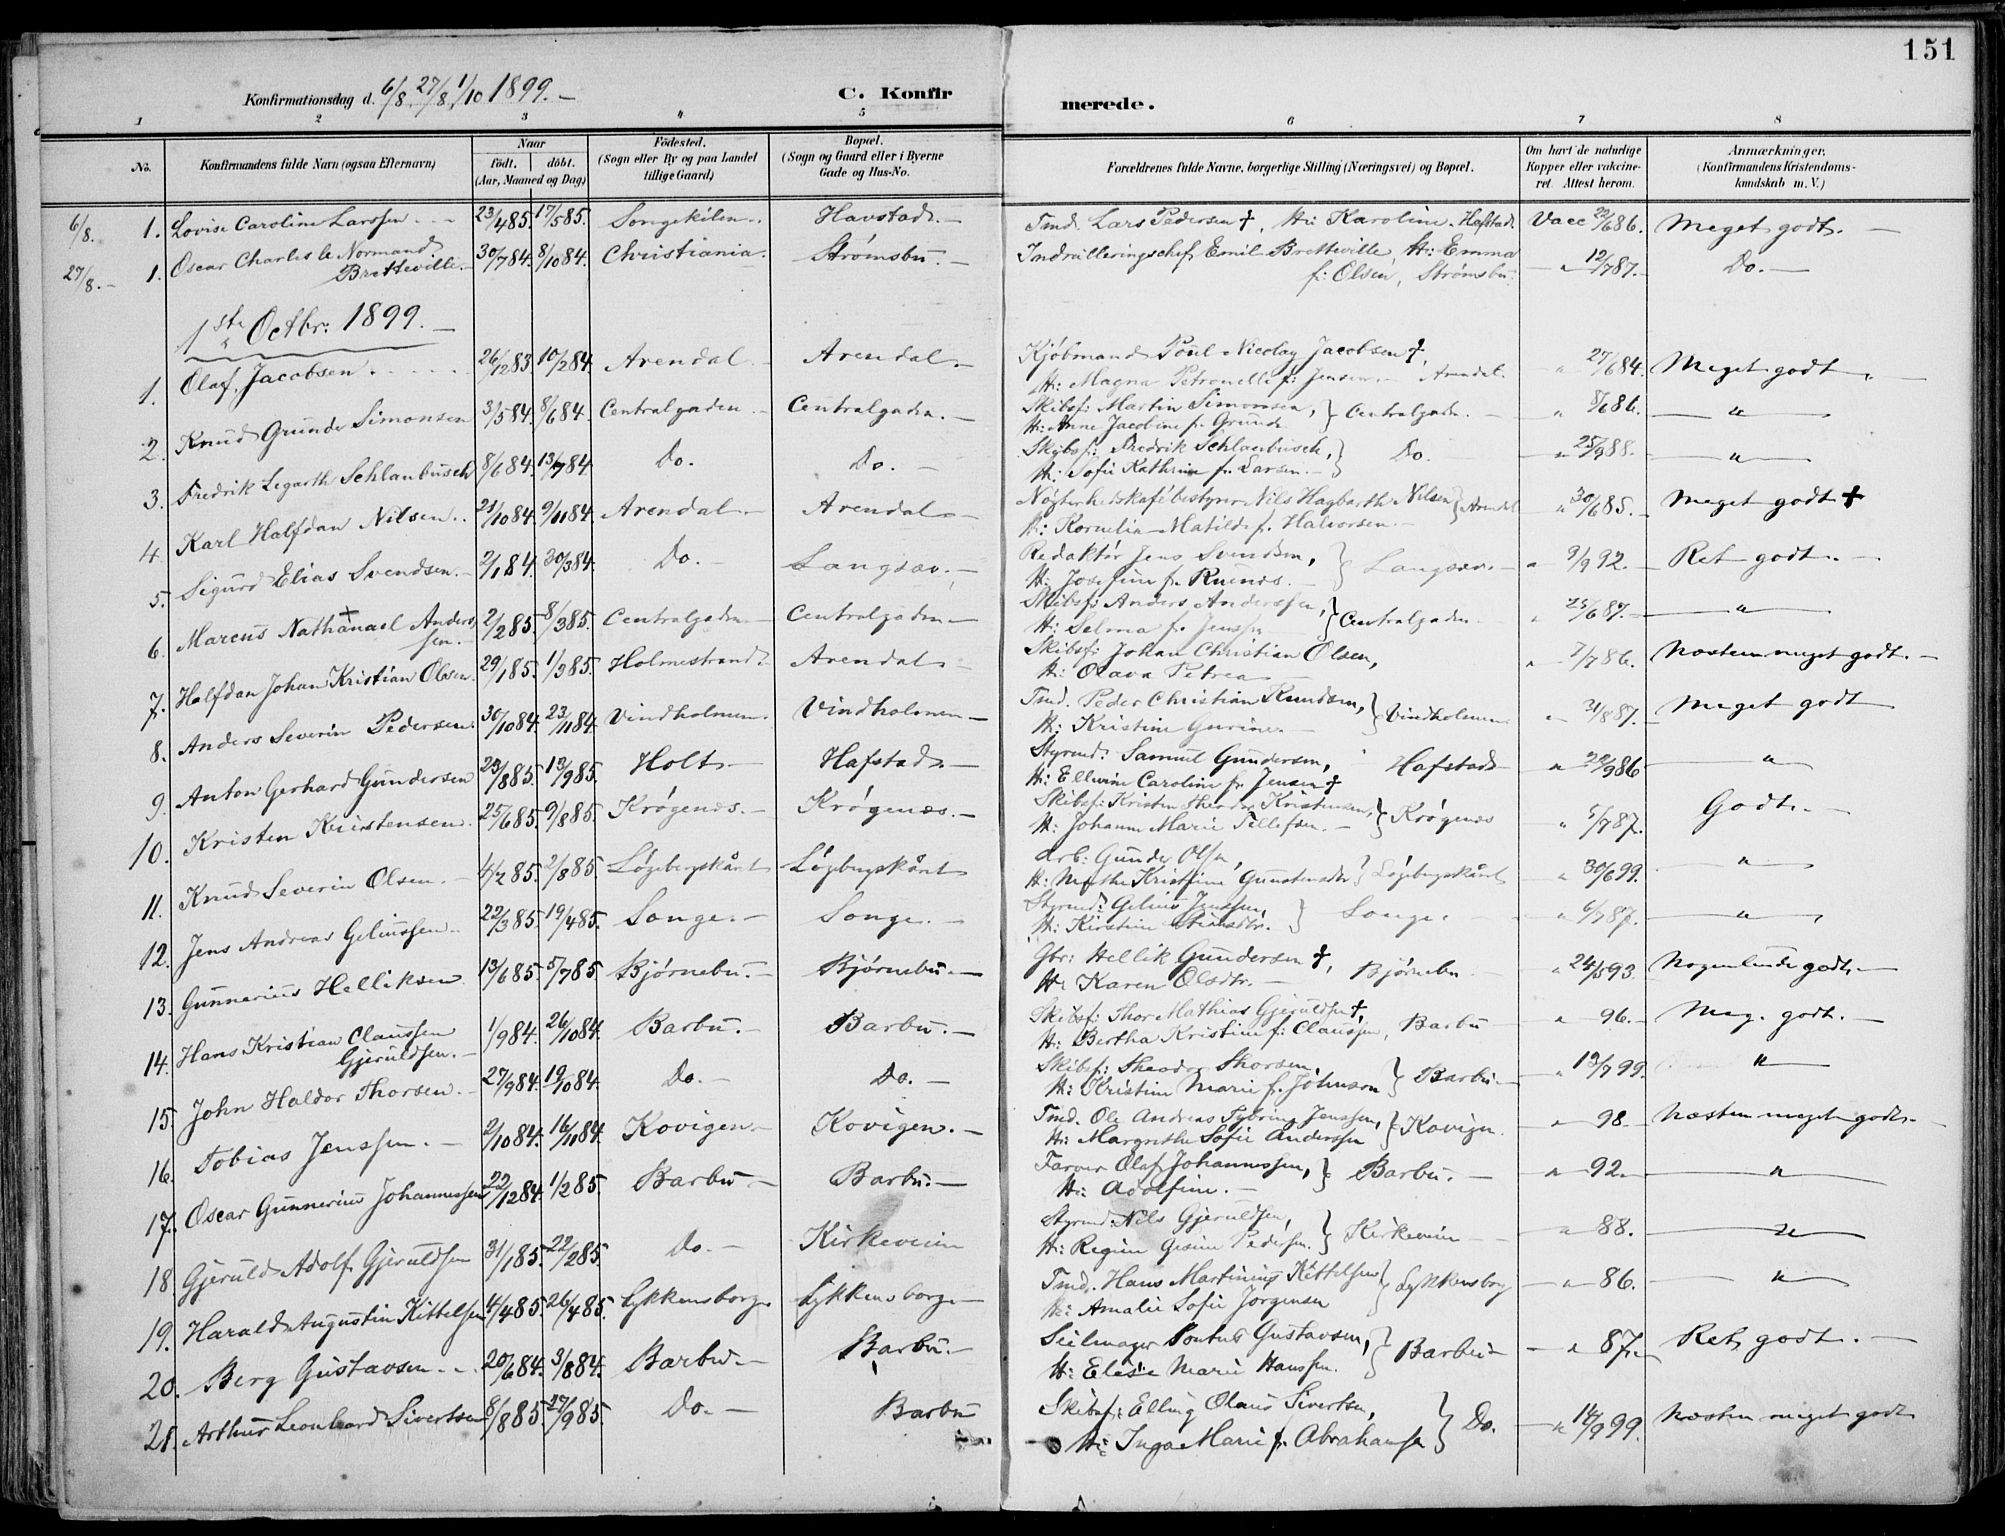 151
Konfirmationsdag d. 6/8. 27/8. 1/10 1899.—
C. Konfirmerede.
1 2 3 4 5 6 7 8
No. Konfirmandens fulde Navn (ogsaa Efternavn) Naar født. døbt. (Aar, Maaned og Dag) Fødested. (Sogn eller By og paa Landet tillige Gaard) Bopæl. (Sogn og Gaard eller i Byerne Gade og Hus-No. Forældrenes fulde Navne, borgerlige Stilling (Næringsvei) og Bopæl. Om havt de naturlige Kopper eller vakcineret. Attest herom. Anmærkninger. (Konfirmandens Kristendomskundskab m. V.)
6/8. 1. Lovise Caroline Larssen 23/4 85. 17/5 85. Songekilen. Havstad. Tmd. Lars Pedersen †, H: Karoline. Hafstad. Vacc 22/6 86. Meget godt.
27/8. 1. Oscar Charles le Normand Bretteville. 30/7 84. 8/10 84. Christiania. Strømsbu. Indrulleringschef Emil Bretteville, H: Emma f: Olsen, Strømsbu. " 12/7 87. Do.
1ste Octbr: 1899.
1. Olaf Jacobsen 26/12 83 10/2 84. Arendal Arendal Kjøbmand Poul Nicolay Jacobsen †, H: Magna Petronelle f: Jensen. Arendal. " 27/6 84. Meget godt
2. Knud Grunde Simonsen 3/5 84. 8/6 84. Centralgaden Centralgaden. Skibsf: Martin Simonsen, H: Anne Jacobine f. Grunde } Centralgaden. " 8/6 86. "
3. Fredrik Legarth Schlanbusch 8/6 84. 13/7 84. Do. Do. Skibsf: Fredrik Schlanbusch, H: Sofie Kathrine f. Larsen. } Do. " 25/9 88. "
4. Karl Halfdan Nilsen 21/10 84. 9/11 84. Arendal Arendal Nøgterhedskafébestyrer Nils Hagbarth Nilsen H: Kornelia Matilde f. Halvorsen. } Arendal " 30/6 85. Meget godt †
5. Sigurd Elias Svendsen. 2/1 84. 30/3 84. Do. Langsæv. Redaktør Jens Svendsen, H: Josefine f. Ruenæs. } Langsæv. " 9/9 92. Ret godt.
6. Marcus Nathanael Anderssen. 2/2 85. 8/3 85. Centralgaden Centralgaden Skibsf: Anders Anderssen, H: Selma f. Jenssen } Centralgaden " 25/6 87. "
7. Halfdan Johan Kristian Olsen. 29/1 85. 1/3 85. Holmestrand. Arendal. Skibsf: Johan Christian Olsen, H: Olava Petrea " 7/7 86. Næsten meget godt.
8. Anders Severin Pedersen. 30/10 84. 23/11 84. Vindholmen. Vindholmen Tmd. Peder Christian Knudsen, H: Kristine Gurine. } Vindholmen " 31/8 87. Meget godt
9. Anton Gerhard Gundersen 23/8 85. 13/9 85. Holt. Hafstad. Styrmd: Samuel Gundersen, H: Ellevine Caroline f. Jensen † Hafstad " 22/9 86 "
10. Kristen Kristensen. 25/6 85. 9/8 85. Krøgenæs. Krøgenæs. Skibsf: Kristen Theodor Kristensen, H: Johanne Marie Tellefsen. } Krøgenæs " 5/7 87. Godt.
11. Knud Severin Olsen. 4/2 85. 2/8 85. Løgebergskånt Løgbergskånt Arb: Gunder Olsen, H: Marthe Kristine Gunstensdtr } Løgebergskånt " 30/6 99. "
12. Jens Andreas Geliussen. 22/3 85. 19/4 85. Songe. Songe. Styrmd: Gelius Jenssen, H: Kirstine } Songe. " 6/7 87. "
13. Gunnerius Helliksen 13/6 85. 5/7 85 Bjørnebu. Bjørnebu. Gbr: Hellik Gundersen †, H: Karen Olsdtr. Bjørnebu " 24/5 93. Nogenlunde godt.
14. Hans Kristian Claussen Gjeruldsen. 1/9 84. 26/10 84. Barbu. Barbu. Skibsf: Thor Mathias Gjeruldsen †, H: Bertha Kristine f: Claussen, Barbu " 96. Meg. godt.
15. John Haldor Thorsen. 27/9 84. 19/10 84. Do. Do. Skibsf: Theodor Thorsen, H: Kristine Marie f. Johnsen } Barbu. " 13/7 99. "
16. Tobias Jenssen. 2/10 84. 16/11 84. Kovigen. Kovigen. Tmd. Ole Andreas Tybring Jenssen, H: Margrethe Sofie Andersen } Kovigen " 98. Næsten meget godt.
17. Oscar Gunnerius Johannessen 22/12 84. 1/2 85. Barbu. Barbu. Farver Olaf Johannessen, H: Adolfine. } Barbu. " 92. "
18. Gjeruld Adolf Gjeruldsen 31/1 85. 22/2 85. Do. Kirkeveien Styrmd: Nils Gjeruldsen, H: Regine Gesine Pedersen. } Kirkeveien " 88. "
19. Harald Augustin Kittelsen 14/4 85. 26/4 85. Lykkensborg. Lykkensborg. Tmd. Hans Martinius Kittelsen H: Amalie Sofie Jørgensen } Lykkensborg " 86. "
20. Berg Gustavsen 20/6 84. 3/8 84. Barbu. Barbu. Seilmager Pontus Gustavsen, H: Elise Marie Hanssen. } Barbu " 87. Ret godt.
21. Arthur Leonhard Sivertsen 8/8 85. 27/9 85. Do. Barbu Skibsf: Elling Olaus Sivertsen, H: Inga Marie f. Abrahamsen } Do. " 14/9 99. Næsten meget godt